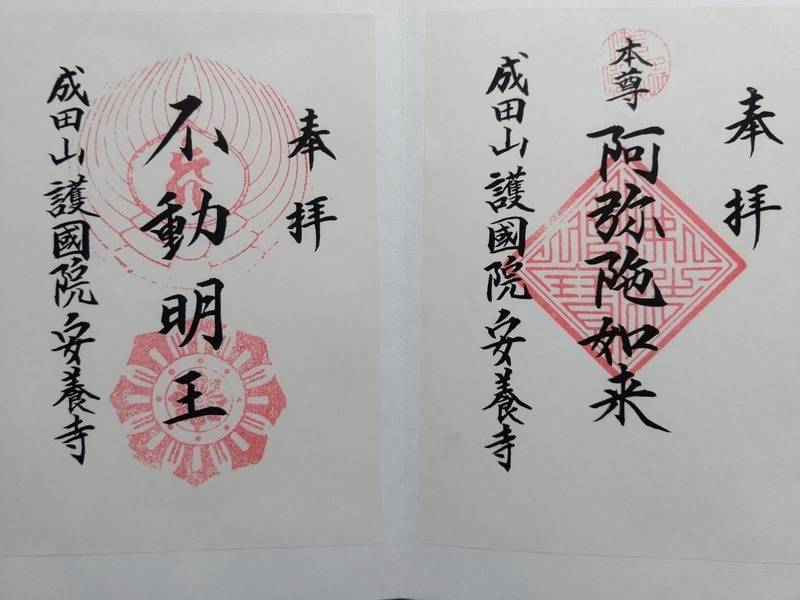 奉拝
本尊
阿弥陀如来
成田山護國院安養寺
奉拝
不動明王
成田山護國院安養寺